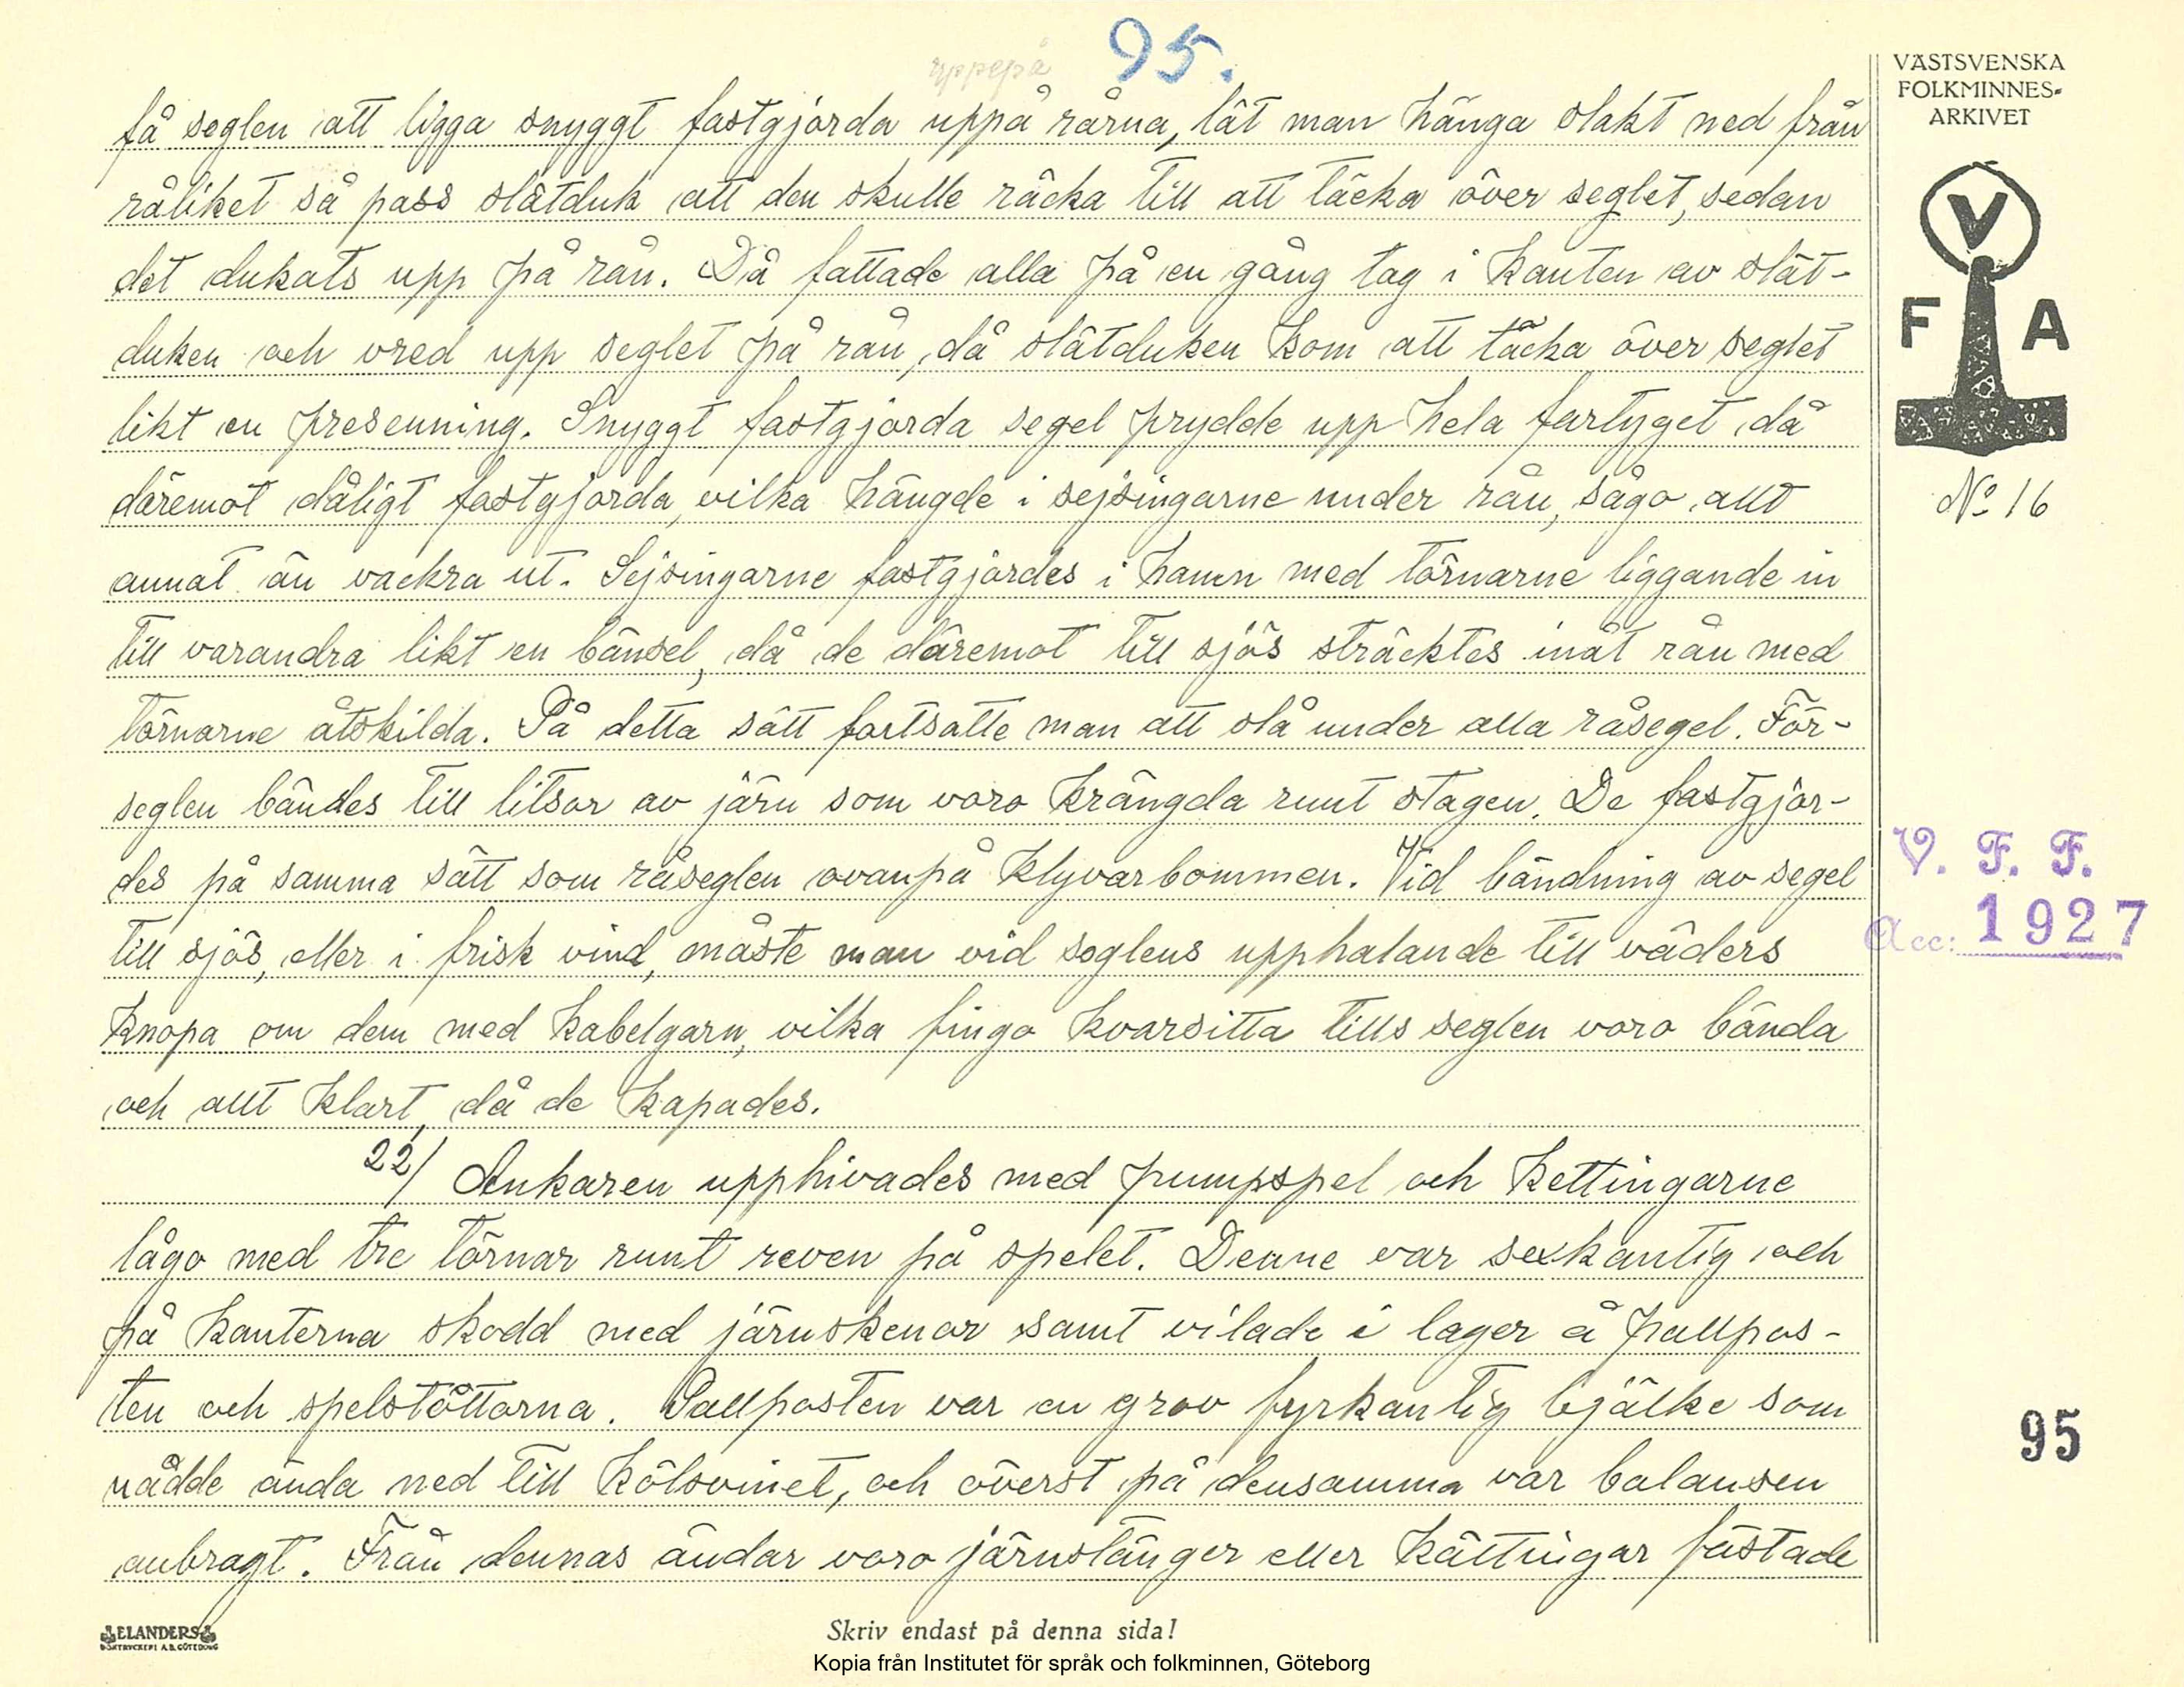 95.
uppepå
få seglen att ligga snyggt fastgjorda uppå rårna, lät man hänga slakt ned från
råliket så pass slätduk att den skulle räcka till att täcka över seglet, sedan
det dukats upp på rån. Då fattade alla på en gång tag i kanten av slät-
duken och vred upp seglet på rån, då slätduken kom att täcka över seglet
likt en presenning. Snyggt fastgjorda segel prydde upp hela fartyget, då
däremot dåligt fastgjorda, vilka hängde i sejsingarne under rån, sågo allt
annat än vackra ut. Sejsingarne fastgjordes i hamn med törnarne liggande in
till varandra likt en bändsel, då de däremot till sjös sträcktes inåt rån med
törnarne åtskilda. På detta sätt fortsatte man att slå under alla råsegel. För-
seglen bändes till litsor av järn som voro krängda runt stagen. De fastgjor-
des på samma sätt som råseglen ovanpå klyvarbommen. Vid bändning av segel
till sjös, eller i frisk vind, måste man vid seglens upphalande till väders
knopa om dem med kabelgarn, vilka fingo kvarsitta tills seglen voro bända
och allt klart, då de kapades.
22/ Ankaren upphivades med pumpspel och kettingarne
lågo med tre törnar runt reven på spelet. Denne var sexkantig och
på kanterna skodd med järnskenor samt vilade i lager å pallpos-
ten och spelstöttorna. Pallposten var en grov fyrkantig bjälke som
nådde ända ned till kölsvinet, och överst på densamma var balansen
anbragt. Från dennas ändar voro järnstänger eller kättingar fästade
VÄSTSVENSKA
FOLKMINNES-
ARKIVET
V
F A
No 16
V. F. F.
Acc: 1927
95
ELANDERS
BOKTRYCKERI A.B. GÖTEBORG
Skriv endast på denna sida!
Kopia från Institutet för språk och folkminnen, Göteborg